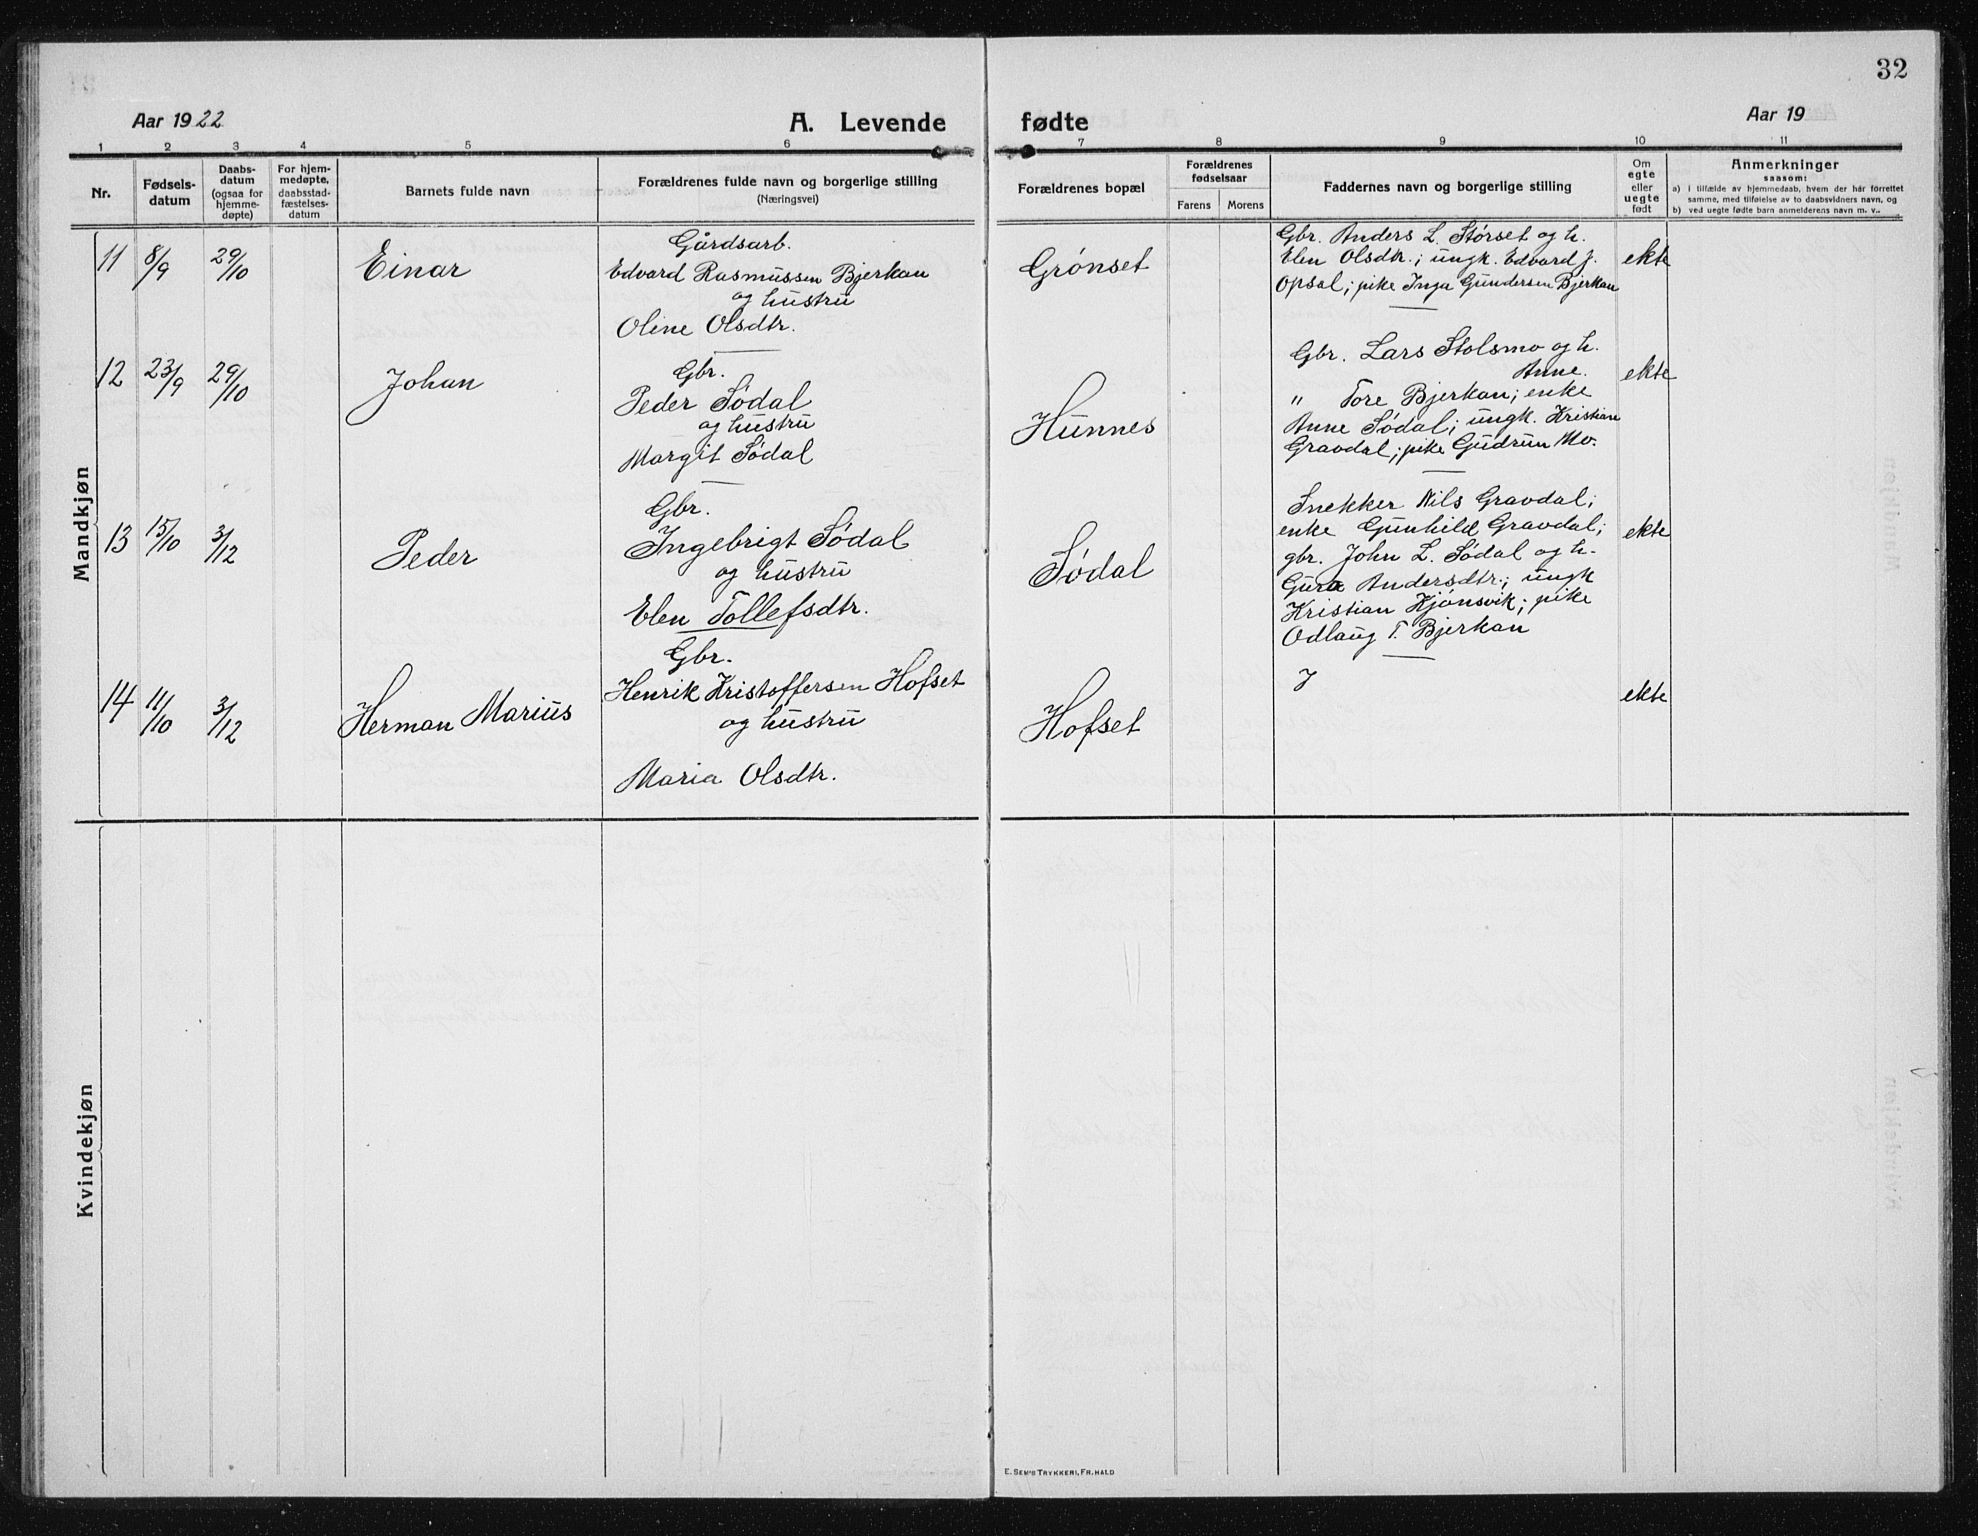 32
Aar 1922
A. Levende fødte
Aar 19
1 2 3 4 5 6 7 8 9 10 11
Nr.
Fødsels-
datum
Daabs-
datum
(ogsaa for
hjemme-
døpte)
For hjem-
medøpte,
daabsstad-
fæstelses-
datum
Barnets fulde navn
Forældrenes fulde navn og borgerlige stilling
(Næringsvei)
Forældrenes bopæl
Forældrenes
fødselsaar
Farens Morens
Faddernes navn og borgerlige stilling
Om
egte
eller
uegte
født
Anmerkninger
saasom:
a) i tilfælde av hjemmedaab, hvem der har forrettet
samme, med tilføielse av to daabsvidners navn, og
b) ved uegte fødte barn anmelderens navn m. v..
Mandkjøn
11 8/9 29/10 Einar
Gårdsarb.
Edvard Rasmussen Bjerkan
og hustru
Oline Olsdtr.
Grønset
Gbr. Anders L. Størset og h.
Elen Olsdtr.; ungk. Edvard J.
Opsal; pike Inga Gundersen Bjerkan
ekte
12 23/9 29/10 Johan
Gbr.
Peder Sødal
og hustru
Margit Sødal
Hunnes
Gbr. Lars Stolsmo og h.
Anne.
" Tore Bjerkan; enke
Anne Sødal; ungk. Kristian
Gravdal; pike Gudrun Mo.
ekte
13 15/10 3/12 Peder
Gbr.
Ingebrigt Sødal
og hustru
Elen Tollefsdtr.
Sødal
Snekker Nils Gravdal;
enke Gunhild Gravdal;
gbr. John L. Sødal og h.
Gura Andersdtr.; ungk
Kristian Hjønsvik; pike
Odlaug T. Bjerkan
ekte
14 11/10 3/12 Herman Marius
Gbr.
Henrik Kristoffersen Hofset
og hustru
Maria Olsdtr.
Hofset
ekte
Kvindekjøn
E. Sem's Trykkeri, Fr.hald